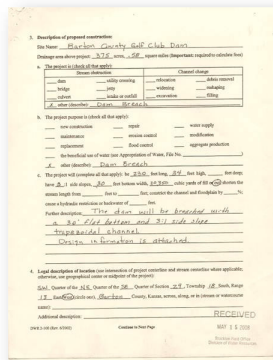 3. Description of proposed construction:
Site Name: Barton County Golf Club Dam
Drainage area above project: 375 acres, .58 square miles (Important: required to calculate fees)
a. The project is (check all that apply):
Stream obstruction Channel change
dam utility crossing relocation debris removal
bridge jetty widening reshaping
culvert intake or outfall excavation filling
X other (describe): Dam Breach
b. The project purpose is (check all that apply):
new construction repair water supply
maintenance erosion control modification
replacement flood control aggregate production
the beneficial use of water (see Appropriation of Water, File No. )
X other (describe): Dam Breach
c. The project will (complete all that apply): be 260 feet long, 84 feet high, feet deep;
have 3:1 side slopes, 30 feet bottom width, cubic yards of fill or cut; shorten the
stream length from feet to feet; counter the channel and floodplain by %
cause a hydraulic restriction or backwater of feet.
Further description: The dam will be breached with
a 30' flat bottom and 3:1 side slope
trapezoidal channel.
Design information is attached.
4. Legal description of location (use intersection of project centerline and stream centerline where applicable;
otherwise, use geographical center or midpoint of the project):
SW Quarter of the NE Quarter of the SE Quarter of Section 29, Township 18 South, Range
13 (circle one), Barton County, Kansas, across, along, or in (stream or watercourse
name):
Additional description:
RECEIVED
MAY 1 2008
DWR 2-100 (Rev. 4/2002) Continue to Next Page